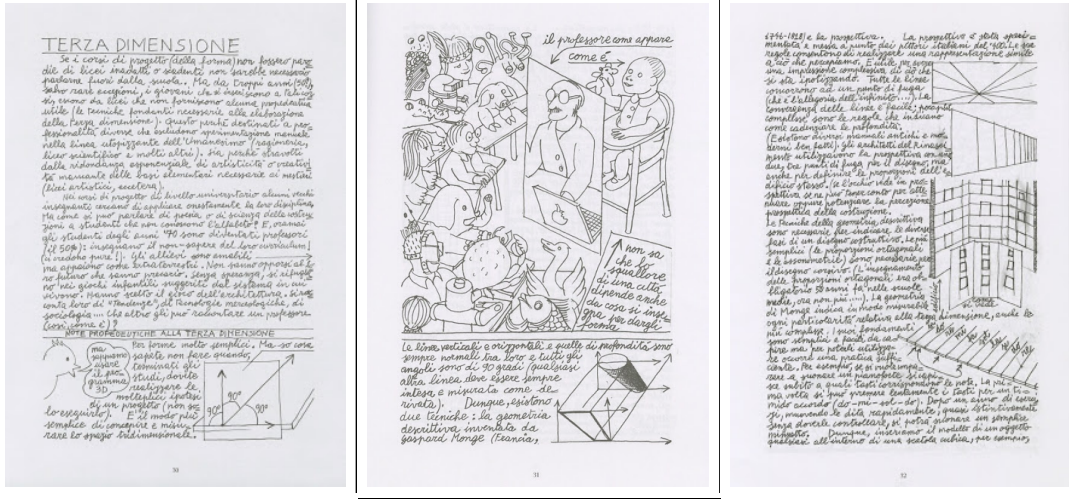 TERZA DIMENSIONE
Se i corsi di progetto (della forma) non fossero pare
die di licei inadatti o scadenti non sarebbe necessario
parlarne fuori dalla scuola. Ma da troppi anni (50),
salvo rare eccezioni, i giovani che si inseriscono a tali cor
si, escono da licei che non forniscono alcuna propedeutica
utile (le tecniche fondanti necessarie alla elaborazione
della terza dimensione). Questo perché destinati a pro=
fessionalità diverse che escludono sperimentazione manuale
nella linea utopizzante dell'Umanesimo (ragioneria,
liceo scientifico e molti altri). Sia perché stravolti
dalla ridondanza esponenziale di artisticità o creativi
tà mancante delle basi elementari necessarie ai mestieri
(licei artistici, eccetera).
Nei corsi di progetto di livello universitario alcuni vecchi
insegnanti cercano di applicare onestamente la loro disciplina.
Ma come si può parlare di poesia o di scienza delle costru
zioni a studenti che non conoscono l'alfabeto? E, ormai
gli studenti degli anni '70 sono diventati professori
(il 50%): insegnano il non-sapere del loro curriculum!
(ci credono pure!). Gli allievi sono amabili
ma appaiono come extraterrestri. Non sanno opporsi al lo
ro futuro che sanno precario. Senza speranza, si rifugia
no nei giochi infantili suggeriti dal sistema in cui
vivono. Hanno scelto il gioco dell'architettura. Si rac
conta loro di "tendenze", di tecnologie merceologiche, di
sociologia... Che altro gli può raccontare un professore
(così come è)?
NOTE PROPEDEUTICHE ALLA TERZA DIMENSIONE
ma
sappiamo
usare
il pro
gramma
3D
Per forme molto semplici. Ma so cosa
sapete non fare quando,
terminati gli
studi, dovrete
realizzare le
molteplici ipotesi
di un progetto (non so
lo eseguirlo). È il modo più
semplice di concepire e misu=
rare lo spazio tridimensionale.
90°
90°
90°
30
il professore come appare
come è
non sa
che lo
squallore
di una città
dipende anche
da cosa si inse
gna per dargli
forma
Le linee verticali e orizzontali e quelle di profondità sono
sempre normali tra loro e tutti gli
angoli sono di 90 gradi (qualsiasi
altra linea deve essere sempre
intesa e misurata come de=
rivata). Dunque, esistono
due tecniche: la geometria
descrittiva inventata da
Gaspard Monge (Francia,
31
1746-1818) e la prospettiva. La prospettiva è stata speri=
mentata e messa a punto dai pittori italiani del '400. Le sue
regole consentono di realizzare una rappresentazione simile
a ciò che percepiamo. È utile per avere
una impressione complessiva di ciò che
si sta ipotizzando. Tutte le linee
concorrono ad un punto di fuga
(che è l'allegoria dell'infinito...). La
convergenza delle linee è facile; poco più
complesse sono le regole che indicano
come cadenziare le profondità.
(Esistono diversi manuali antichi e mo=
derni ben fatti). Gli architetti del Rinasci
mento utilizzavano la prospettiva con uno,
due, tre punti di fuga per il disegno, ma
anche per definire le proporzioni dell'e
dificio stesso. (se l'occhio vede in pro=
spettiva se ne può tener conto per atte
nuare oppure potenziare la percezione
prospettica della costruzione.
Le tecniche della geometria descrittiva
sono necessarie per indicare le diverse
fasi di un disegno costruttivo. Le più
semplici (le proiezioni ortogonali
e le assonometrie) sono necessarie per
il disegno corsivo. (L'insegnamento
delle proiezioni ortogonali era ob=
bligatorio 50 anni fa nelle scuole
medie, ora non più....). La geometria
di Monge indica in modo misurabile
ogni particolarità relativa alla terza dimensione, anche le
più complesse. I suoi fondamenti
sono semplici e facili da ca=
pire ma per poterli utilizza=
re occorre una pratica suffi=
ciente. Per esempio, se si vuole impa=
rare a suonare un pianoforte si capi=
sce subito a quali tasti corrispondono le note. La pri=
ma volta si può premere lentamente i tasti per un ti=
mido accordo (do-mi-sol-do). Dopo un anno di eserci
zi, muovendo le dita rapidamente, quasi istintivamente
senza doverle controllare, si potrà suonare un semplice
minuetto. Dunque, inseriamo il modello di un oggetto
qualsiasi all'interno di una scatola cubica, per esempio,
come
si vede
32